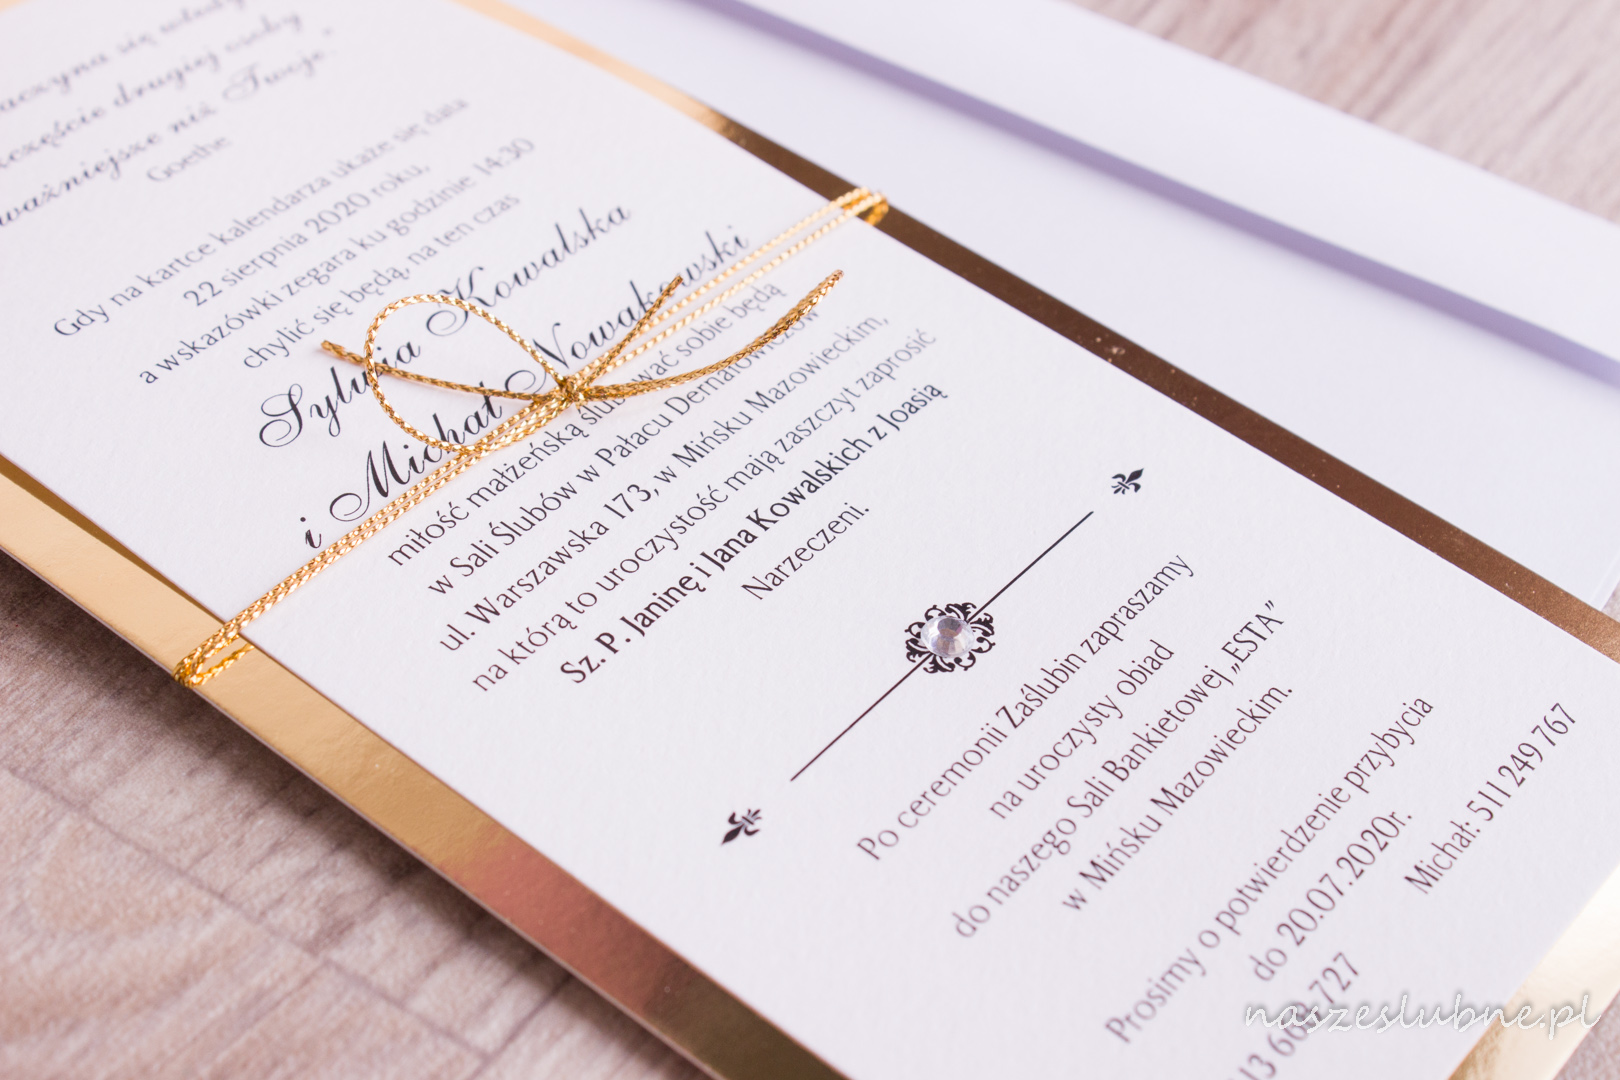 aczyna się
zęście drugiej osoby
ważniejsze niż Twoje."
Goethe
Gdy na kartce kalendarza ukaże się data
22 sierpnia 2020 roku,
a wskazówki zegara ku godzinie 14:30
chylić się będą, na ten czas
Sylwia Kowalska
i Michał Nowakowski
miłość małżeńską ślubować sobie będą
w Sali Ślubów w Pałacu Dernałowiczów
ul. Warszawska 173, w Mińsku Mazowieckim,
na którą to uroczystość mają zaszczyt zaprosić
Sz. P. Janinę i Jana Kowalskich z Joasią
Narzeczeni.
Po ceremonii Zaślubin zapraszamy
na uroczysty obiad
do naszego Sali Bankietowej „ESTA”
w Mińsku Mazowieckim.
Prosimy o potwierdzenie przybycia
do 20.07.2020r.
Michał: 511 249 767
727
naszeslubne.pl